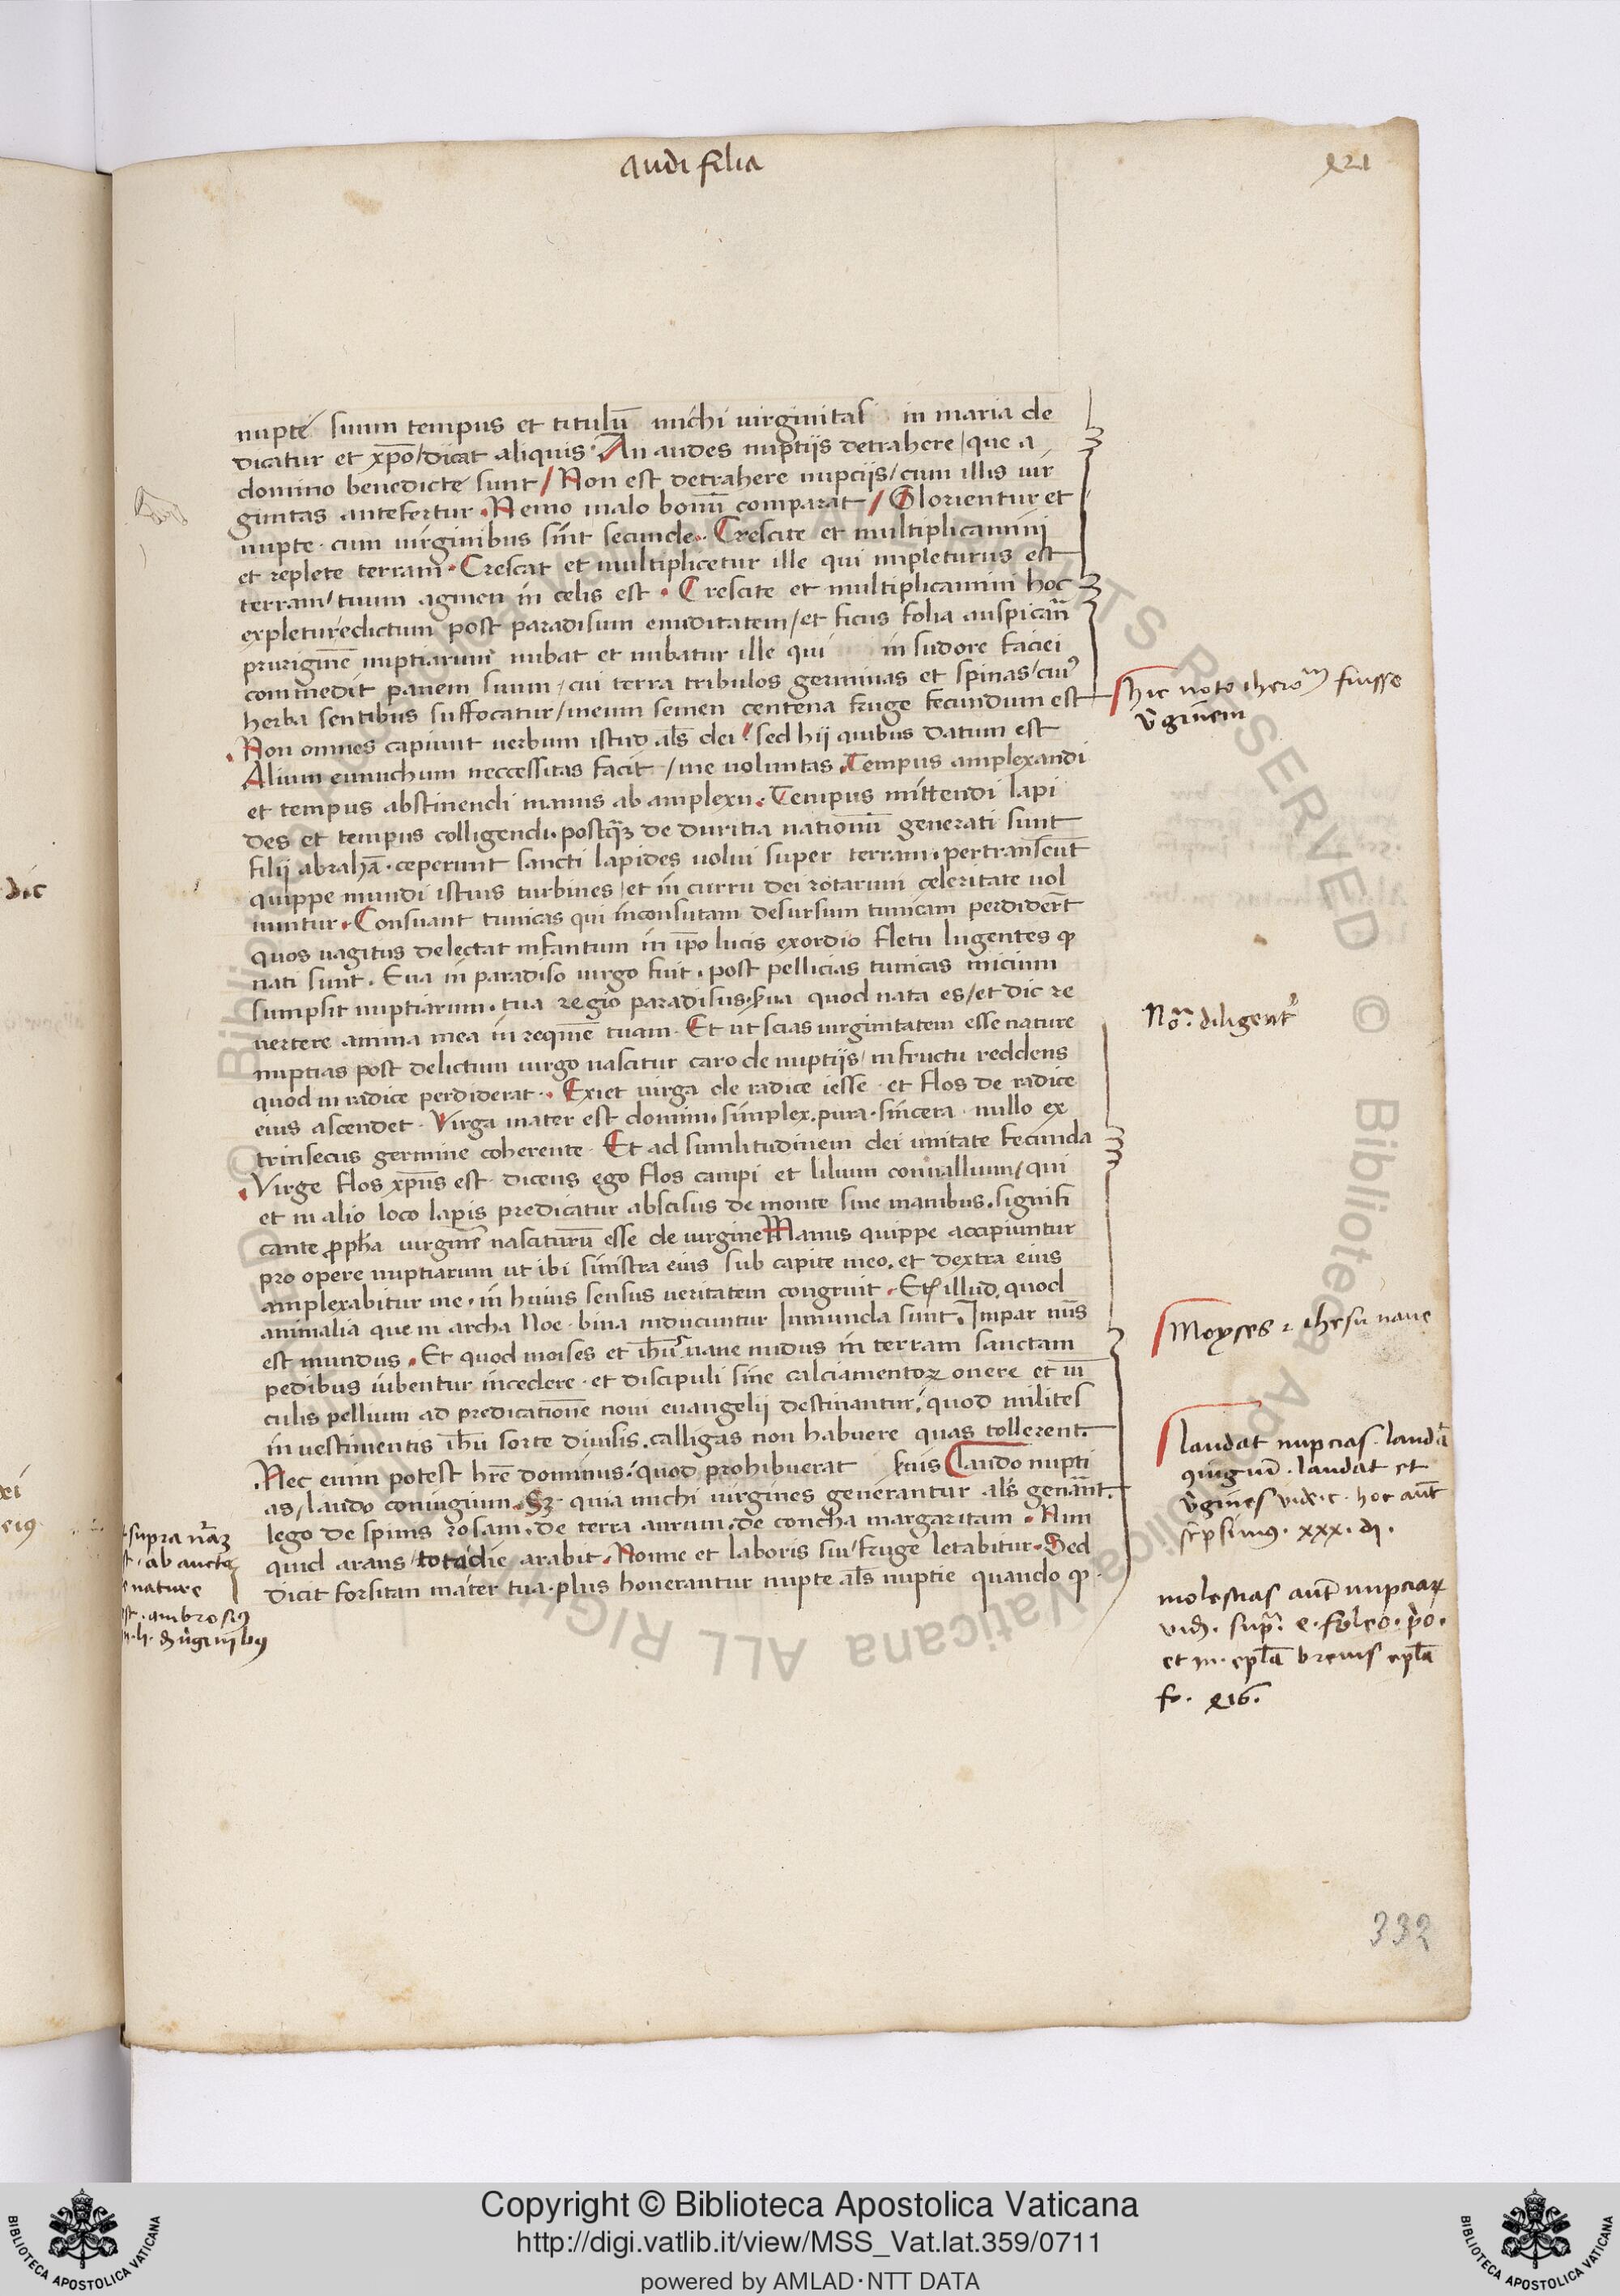 audi filia
nupte suum tempus et titulū michi virginitas in maria de
dicatur et xp̄o/dicat aliquis. An audes nuptijs detrahere/que a
domino benedicte sunt/Non est detrahere nupcijs/cum illis vir
ginitas antefertur. Nemo malo bonū comparat/Glorientur et
nupte. cum virginibus sint secunde. Crescite et multiplicamini
et replete terram. Crescat et multiplicetur ille qui impleturus est
terram/tuum agmen in celis est. Crescite et multiplicamini hoc
expletur edictum post paradisum et nuditatem/et ficus folia auspicātia
pruriginē nuptiarum nubat et nubatur ille qui in sudore faciei
commedit panem suum/cui terra tribulos germinas et spinas/cuiꝰ
herba sentibus suffocatur/meum semen centena fruge fecundum est
Non omnes capiunt verbum istud als̄ dei/sed hij quibus datum est
Alium eunuchum neccessitas facit/me voluntas. Tempus amplexandi
et tempus abstinendi manus ab amplexu. Tempus mittendi lapi
des et tempus colligendi. postqꝫ de duritia nationū generati sunt
filii abrahā. ceperunt sancti lapides volui super terram. pertranseūt
quippe mundi istius turbines/et in curru dei rotarum celeritate vol
uuntur. Consuant tunicas qui inconsutam desursum tunicam perdiderūt
quos vagitus delectat infantum in ip̄o lucis exordio fletu lugentes ꝙ
nati sunt. Eua in paradiso virgo fuit. post pellicias tunicas inicium
sumpsit nuptiarum. tua regio paradisus. serua quod nata es/et dic re
uertere anima mea in requiē tuam. Et ut scias virginitatem esse nature
nuptias post delictum virgo nascitur caro de nuptijs/in fructu reddens
quod in radice perdiderat. Exiet virga de radice iesse. et flos de radice
eius ascendet. Virga mater est domini. simplex. pura. sincera. nullo ex
trinsecus germine coherente. Et ad similitudinem dei unitate fecunda
Virge flos xp̄us est. dicens ego flos campi et lilium conuallium/qui
et in alio loco lapis predicatur abscisus de monte sine manibus. signifi
cante propħa virginē nasciturū esse de virgine Manus quippe accipiuntur
pro opere nuptiarum ut ibi sinistra eius sub capite meo. et dextra eius
amplexabitur me. in huius sensus veritatem congruit. Etiā illud quod
animalia que in archa Noe. bina inducuntur Inmunda sunt. Impar nūs
est mundus. Et quod moises et ihū naue nudus in terram sanctam
pedibus iubentur incedere. et discipuli sine calciamentoꝝ onere et vī
culis pellium ad predicationē noui euangelii destinantur. quod milites
in vestimentis ihū sorte diuisis. calligas non habuere quas tollerent.
Nec enim potest hr̄e dominus. quod prohibuerat seruis Laudo nupti
as/laudo coniugium. Sꝫ quia michi virgines generantur als̄ generāt.
lego de spinis rosam. de terra aurum. de concha margaritam. Nun
quid arans/tota die arabit. Nonne et laboris sui/fruge letabitur. Sed
dicit forsitan mater tua. plus honerantur nupte als̄ nuptie quando ꝙ.
hic nota ihero^m fuisse
v̄ginem
No^a. diligenter
Moyses et ihesu naue
laudat nupcias. laudā
ꝯiugiū. laudat et
v̄gines
molestias aūt nupciaꝝ
et in. epl̄a breuis epl̄a
supra
ab
nature
ambrosiꝰ
dic
332
© Biblioteca Apostolica Vaticana ALL RIGHTS RESERVED
Copyright © Biblioteca Apostolica Vaticana
http://digi.vatlib.it/view/MSS_Vat.lat.359/0711
powered by AMLAD·NTT DATA
BIBLIOTECA APOSTOLICA VATICANA
BIBLIOTECA APOSTOLICA VATICANA